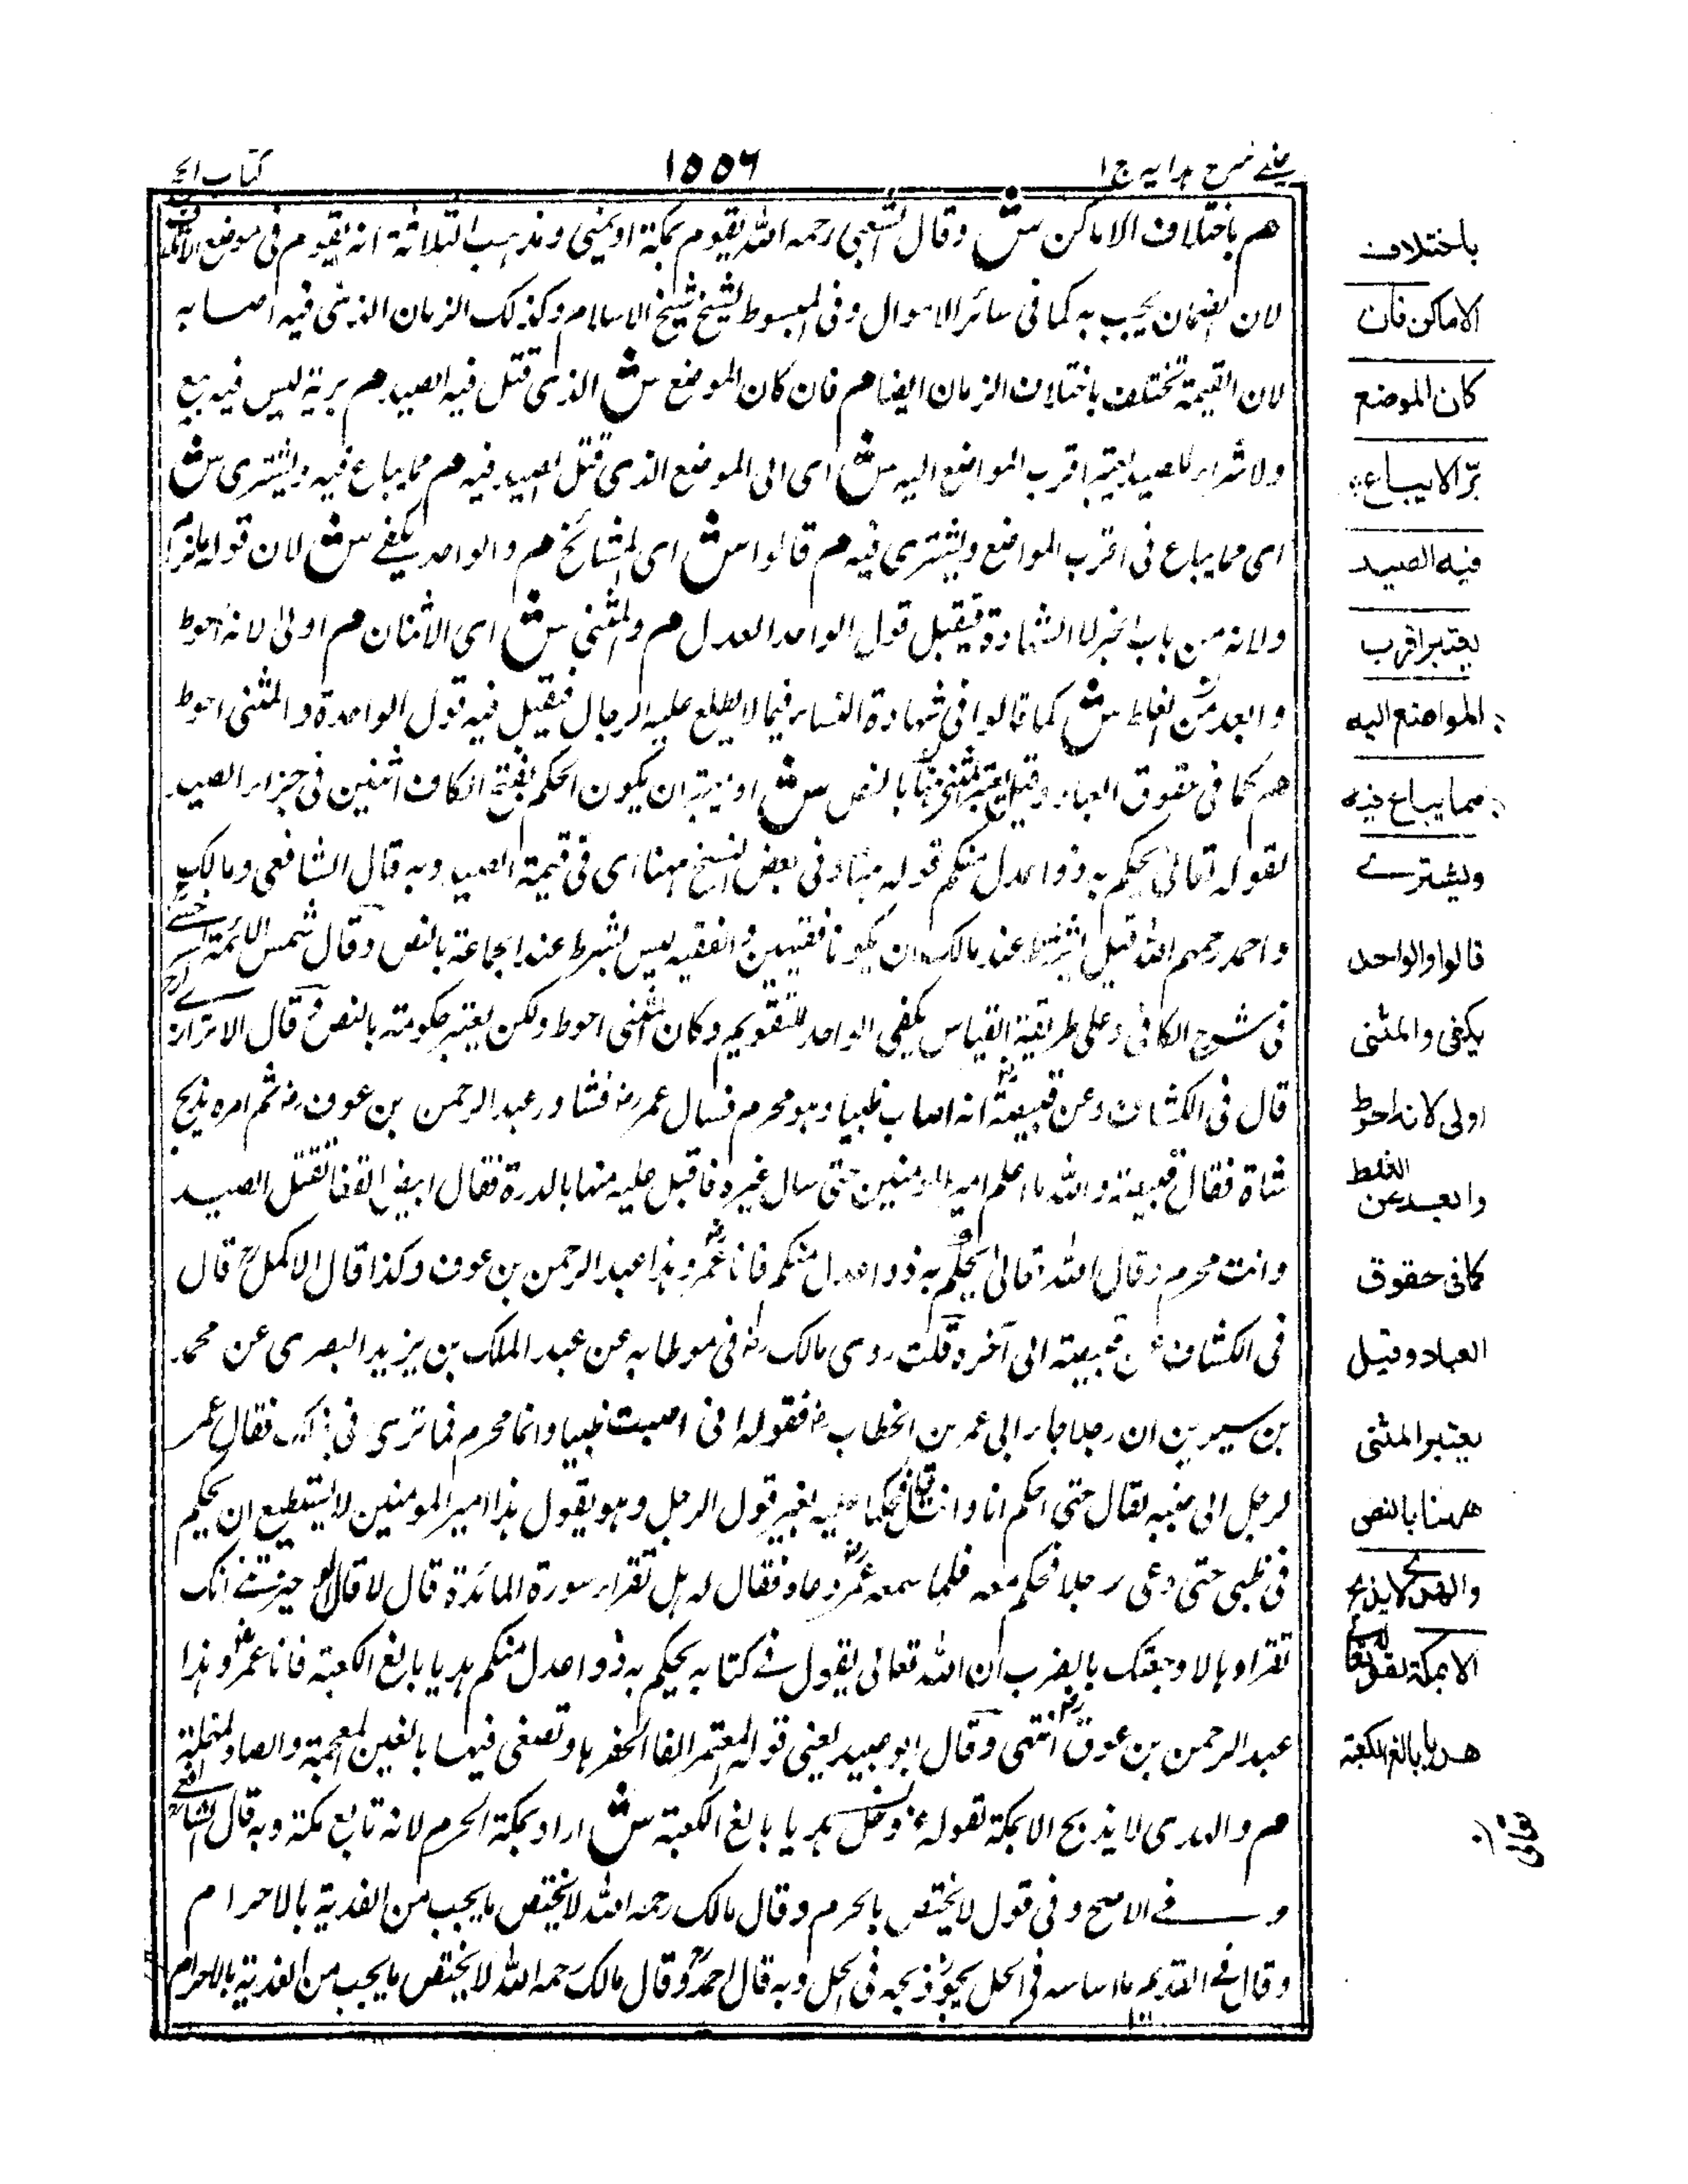 عینی شرح هدایه ج ۱
۱۵۵۶
کتاب الحج
م باختلاف الاماکن ش وقال الشعبی رحمه الله یقوم بمکة او بمنی ومذهب الثلاثة انه یقوم فی موضع الاتلاف
لان الضمان یجب به کما فی سائر الاموال وفی المبسوط لشیخ شیخ الاسلام وکذلک الزمان الذی فیه اصابه
لان القیمة تختلف باختلاف الزمان ایضا م فان کان الموضع ش الذی قتل فیه الصید م بریة لیس فیه بیع
ولا شراء للصید یعتبر اقرب المواضع الیه ش ای الی الموضع الذی قتل الصید فیه م مما یباع فیه ویشتری ش
ای مما یباع فی اقرب المواضع ویشتری فیه م قالوا ش ای المشائخ م والواحد یکفی ش لان قوله ملزم
ولانه من باب الخبر لا الشهادة فیقبل قول الواحد العدل م والمثنی ش ای الاثنان م اولی لانه احوط
وابعد من الغلط ش کما قالوا فی شهادة النساء فیما لا یطلع علیه الرجال فیقبل فیه قول الواحدة والمثنی احوط
م کما فی حقوق العباد وقیل یعتبر المثنی ههنا بالنص ش ان یکون الحکم بفتح الکاف اثنین فی جزاء الصید
لقوله تعالی یحکم به ذوا عدل منکم قوله هنا وفی بعض النسخ ههنا ای فی قیمة الصید وبه قال الشافعی ومالک
واحمد رحمهم الله قیل یشترط عند مالک ان یکونا فقیهین والفقیه لیس بشرط عند الجماعة بالنص وقال شمس الائمة السرخسی
فی شرح الکافی وعلی طریقة القیاس یکفی الواحد للتقویم وکان المثنی احوط ولکن یعتبر حکومته بالنص قال الاترازی
قال فی الکشاف وعن قبیصة انه اصاب ظبیا وهو محرم فسال عمر فشاور عبد الرحمن بن عوف ثم امره بذبح
شاة فقال قبیصة والله ما علم امیر المؤمنین حتی سال غیره فاقبل علیه ضربا بالدرة فقال اتقتل الصید
وانت محرم وقال الله تعالی یحکم به ذوا عدل منکم فانا عمر وهذا عبد الرحمن بن عوف وکذا قال الاکمل قال
فی الکشاف عن قبیصة الی آخره قلت روی مالک فی موطا به عن عبد الملک بن یزید البصری عن محمد
بن سیرین ان رجلا جاء الی عمر بن الخطاب فقوله انی اصبت ظبیا وانا محرم فما تری فی ذلک فقال عمر
لرجل الی جنبه تعال حتی احکم انا وانت قال فحکما علیه بغیر قول الرجل وهو یقول هذا امیر المومنین لا یستطیع ان یحکم
فی ظبی حتی دعی رجلا فحکم معه فلما سمعه عمر دعاه فقال له هل تقرا سورة المائدة قال لا قال لو اخبرتنی انک
تقراوها لاوجعتک بالضرب ان الله تعالی یقول فی کتابه یحکم به ذوا عدل منکم هدیا بالغ الکعبة فانا عمر وهذا
عبد الرحمن بن عوف انتهی وقال ابو عبید یعنی قوله
م والهدی لا یذبح الا بمکة لقوله عز وجل هدیا بالغ الکعبة ش اراد بمکة الحرم لانه تابع مکة وبه قال الشافعی
فی الاصح وفی قول لا یختص بالحرم وقال مالک رحمه الله لا یختص ما یجب من الفدیة بالاحرام
وقال فی القدیم ما اساسه فی الحل یجوز ذبحه فی الحل وبه قال احمد وقال مالک رحمه الله لا یختص ما یجب من الفدیة بالاحرام
باختلاف
الاماکن فان
کان الموضع
برّا لا یباع
فیه الصید
یعتبر اقرب
المواضع الیه
مما یباع فیه
ویشتری
قالوا والواحد
یکفی والمثنی
اولی لانه احوط
وابعد عن الغلط
کما فی حقوق
العباد وقیل
یعتبر المثنی
ههنا بالنص
والهدی لا یذبح
الا بمکة لقوله تعالی
هدیا بالغ الکعبة